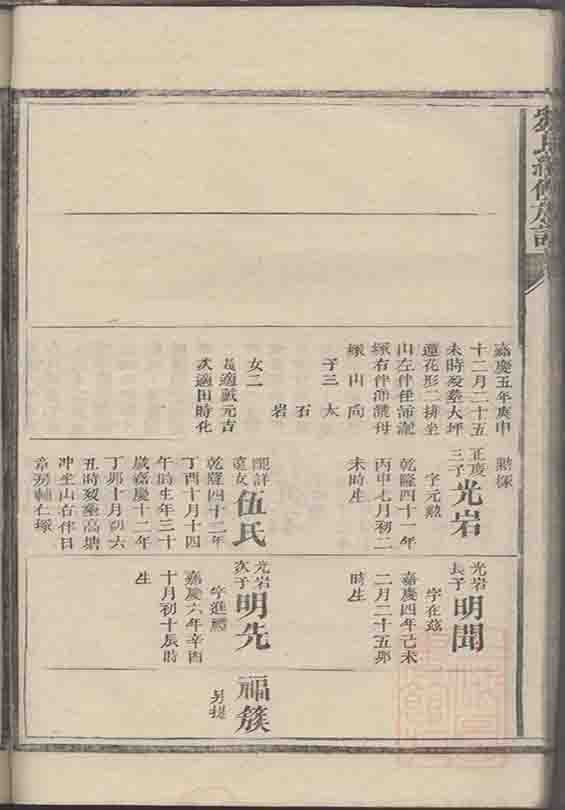 氏續修族譜
嘉慶五年庚申
十二月二十五
未時歿塟大坪
蓮花形二排坐
山左伴侄
右伴
山向
子三
太
石
岩
女二
適戴元吉
次適田時化
正度
三子
光岩
字元勲
乾隆四十一年
丙申七月初二
未時生
女
伍氏
乾隆四十二年
丁酉十月十四
午時生年三十
歲嘉慶十二年
丁卯十月初六
丑時歿塟高塘
冲坐山右伴日
章房輔仁塚
光岩
長子
明聞
字在茲
嘉慶四年己未
二月二十五卯
時生
光岩
次子
明先
字進
嘉慶六年辛酉
十月初十辰時
生
福簇
另提